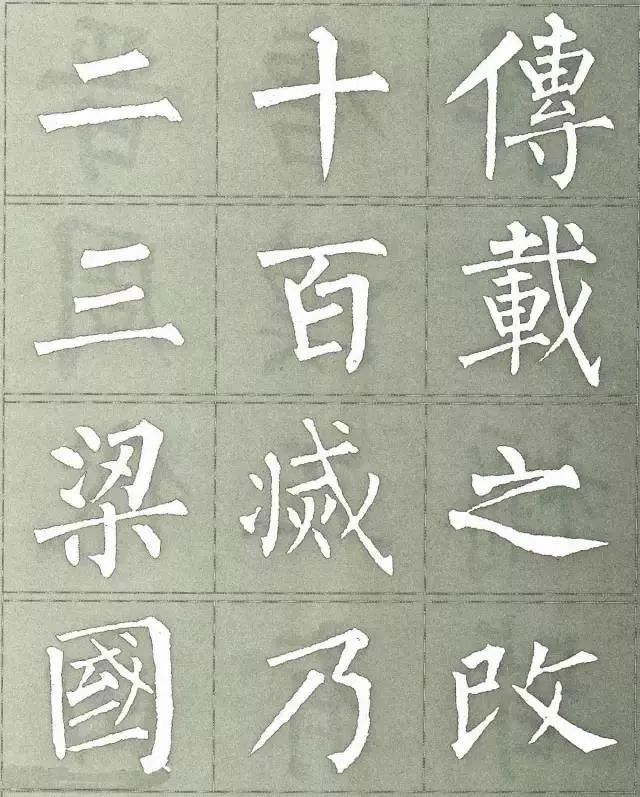 傳載之改
十百滅乃
二三梁國